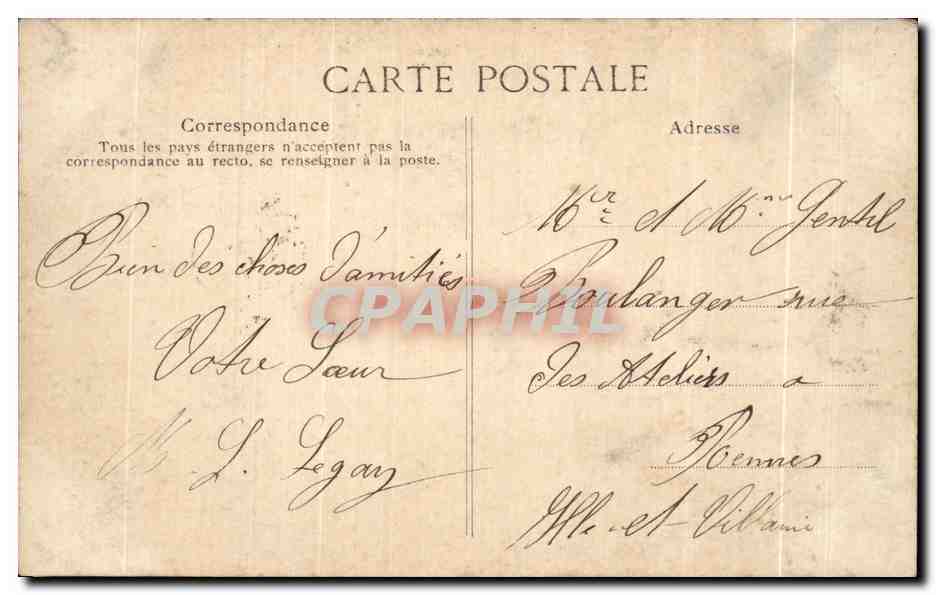 CARTE POSTALE
Correspondance
Tous les pays étrangers n'acceptent pas la
correspondance au recto, se renseigner à la poste.
Bien des choses d'amitiés
Votre Sœur
L. Legay
Adresse
Mr et Mme Gentil
Boulanger rue
des Ateliers a
Rennes
Ille-et-Villaine
CPAPHIL